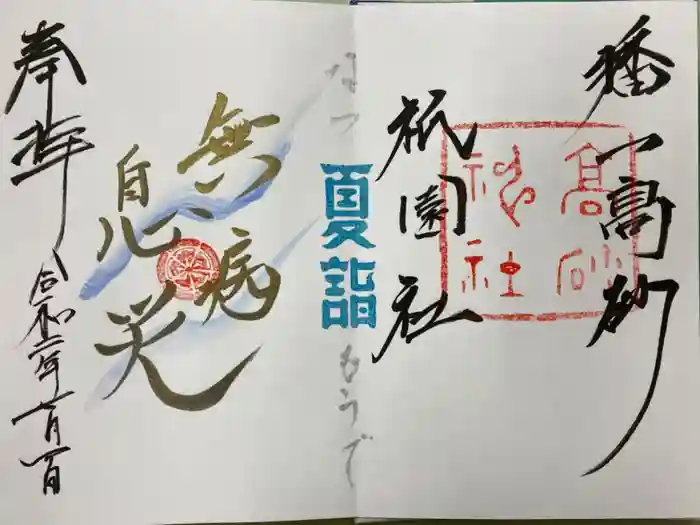 播一高砂
祇園社
高砂
神社
なつ
夏詣
もうで
無病
息災
奉拝
令和二年